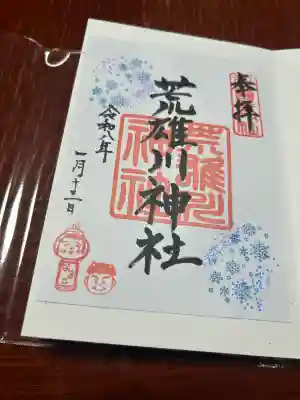 奉拝
荒雄川神社
荒雄川神社
令和八年
一月十三日